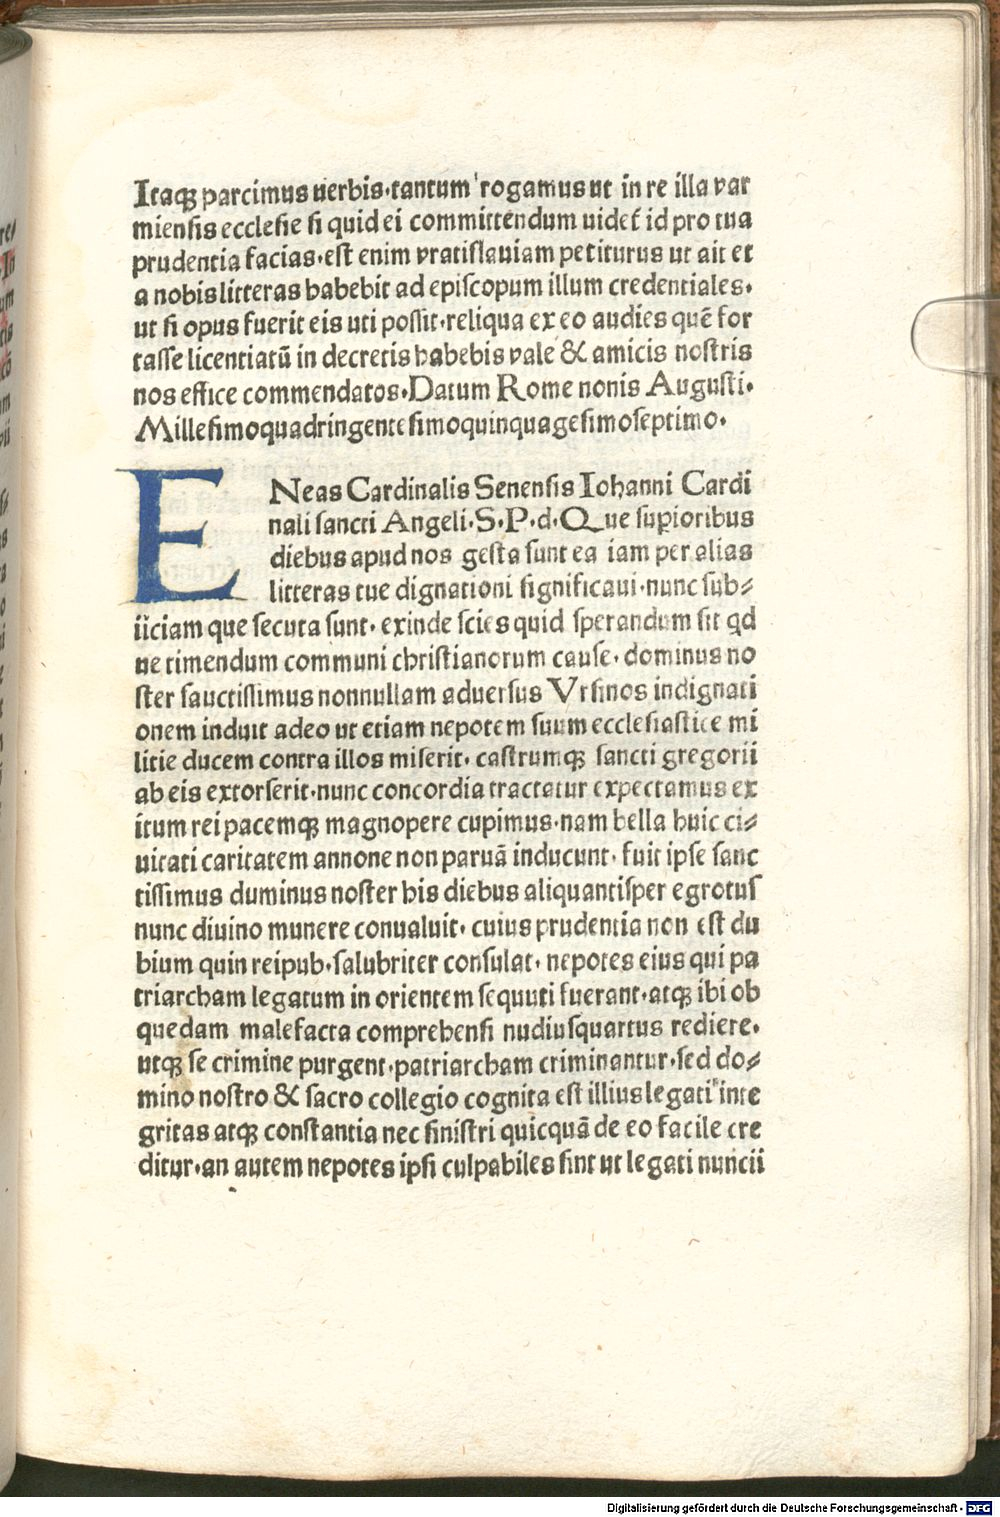 Itaqꝫ parcimus uerbis·tantum rogamus ut in re illa var
miensis ecclesie si quid ei committendum uidet̄ id pro tua
prudentia facias·est enim vratislauiam petiturus ut ait et
a nobis litteras habebit ad episcopum illum credentiales·
ut si opus fuerit eis uti possit·reliqua ex eo audies quē for
tasse licentiatū in decretis habebis vale & amicis nostris
nos effice commendatos·Datum Rome nonis Augusti·
Millesimoquadringentesimoquinquagesimoseptimo·
ENeas Cardinalis Senensis Iohanni Cardi
nali sancti Angeli·S·P·d·Que supioribus
diebus apud nos gesta sunt ea iam per alias
litteras tue dignationi significaui·nunc sub⸗
iiciam que secuta sunt·exinde scies quid sperandum sit qd
ue timendum communi christianorum cause·dominus no
ster sauctissimus nonnullam aduersus Vrsinos indignati
onem induit adeo ut etiam nepotem suum ecclesiastice mi
litie ducem contra illos miserit·castrumqꝫ sancti gregorii
ab eis extorserit·nunc concordia tractatur expectamus ex
itum rei pacemqꝫ magnopere cupimus·nam bella huic ci⸗
uitati caritatem annone non paruā inducunt·fuit ipse sanc
tissimus duminus noster his diebus aliquantisper egrotus
nunc diuino munere conualuit·cuius prudentia non est du
bium quin reipub·salubriter consulat·nepotes eius qui pa
triarcham legatum in orientem sequuti fuerant·atqꝫ ibi ob
quedam malefacta comprehensi nudiusquartus rediere·
utqꝫ se crimine purgent·patriarcham criminantur·sed do⸗
mino nostro & sacro collegio cognita est illius legati inte
gritas atqꝫ constantia nec sinistri quicquā de eo facile cre
ditur·an autem nepotes ipsi culpabiles sint ut legati nuncii
Digitalisierung gefördert durch die Deutsche Forschungsgemeinschaft - DFG